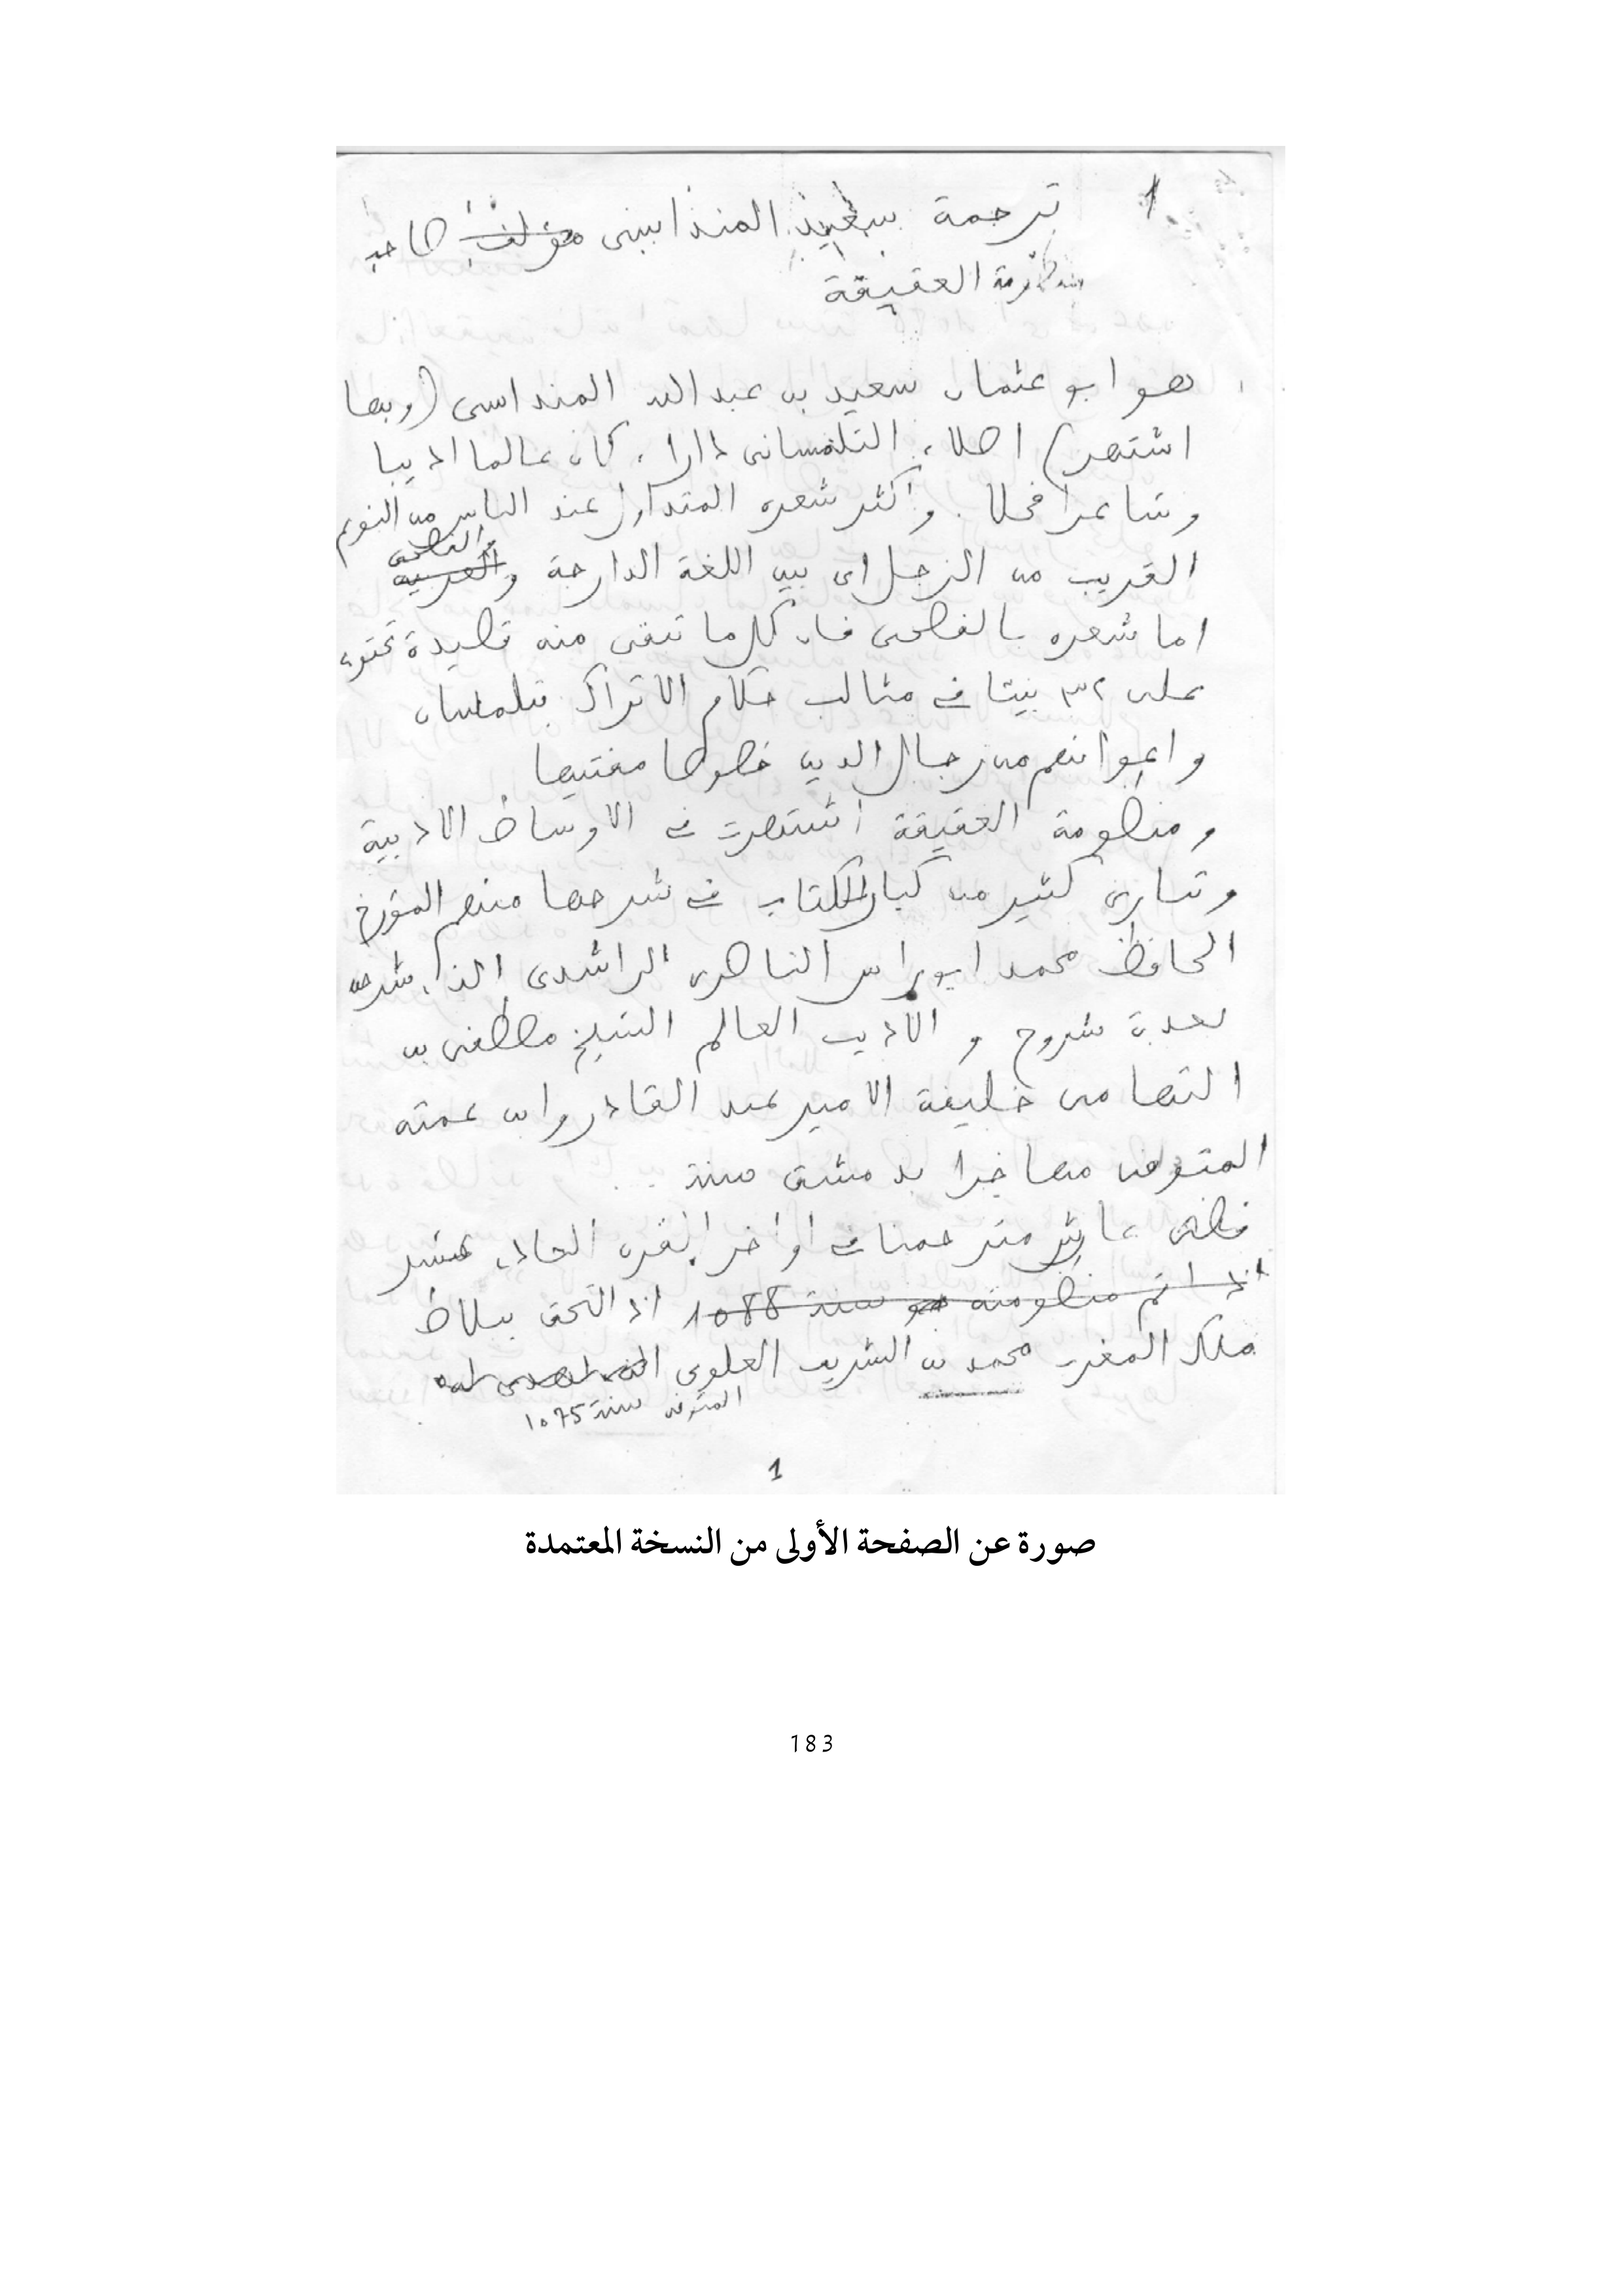 1
ترجمة سعيد المنداسي مؤلف صاحب
العقيقة
هو ابو عثمان سعيد بن عبد الله المنداسي (وبها
اشتهر) اصلا، التلمساني دارا، كان عالما اديبا
وشاعرا فحلا. واكثر شعره المتداول عند الناس من النوع
القريب من الزجل اي بين اللغة الدارجة والعربية والفصحى
اما شعره بالفصحى فان كل ما تبقى منه قصيدة تحتوي
على ٣٢ بيتا في مثالب حكام الاتراك بتلمسان
واعوانهم من رجال الدين خصوصا مفتيها
ومنظومة العقيقة اشتهرت في الاوساط الادبية
وتبارى كثير من كبار الكتاب في شرحها منهم المؤرخ
الحافظ محمد ابوراس الناصري الراشدي الذي شرحه
بعدة شروح و الاديب العالم الشيخ مصطفى بن
التهامي خليفة الامير عبد القادر وابن عمته
المتوفى مهاجرا بدمشق سنة ...
عاش مترجمنا في اواخر القرن الحادي عشر
اذ اتم منظومته سنة 1088 اذ التحق ببلاط
ملك المغرب محمد بن الشريف العلوي
المتوفى سنة 1075
1
صورة عن الصفحة الأولى من النسخة المعتمدة
183